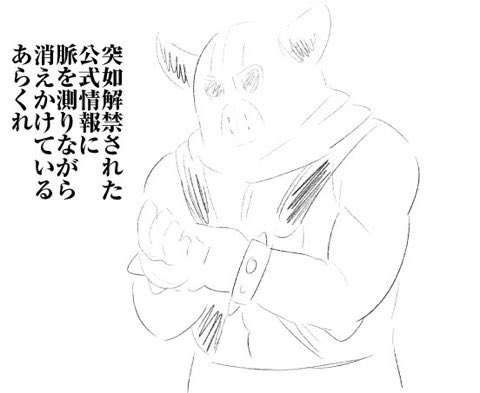 突如解禁された
公式情報に
脈を測りながら
消えかけている
あらくれ